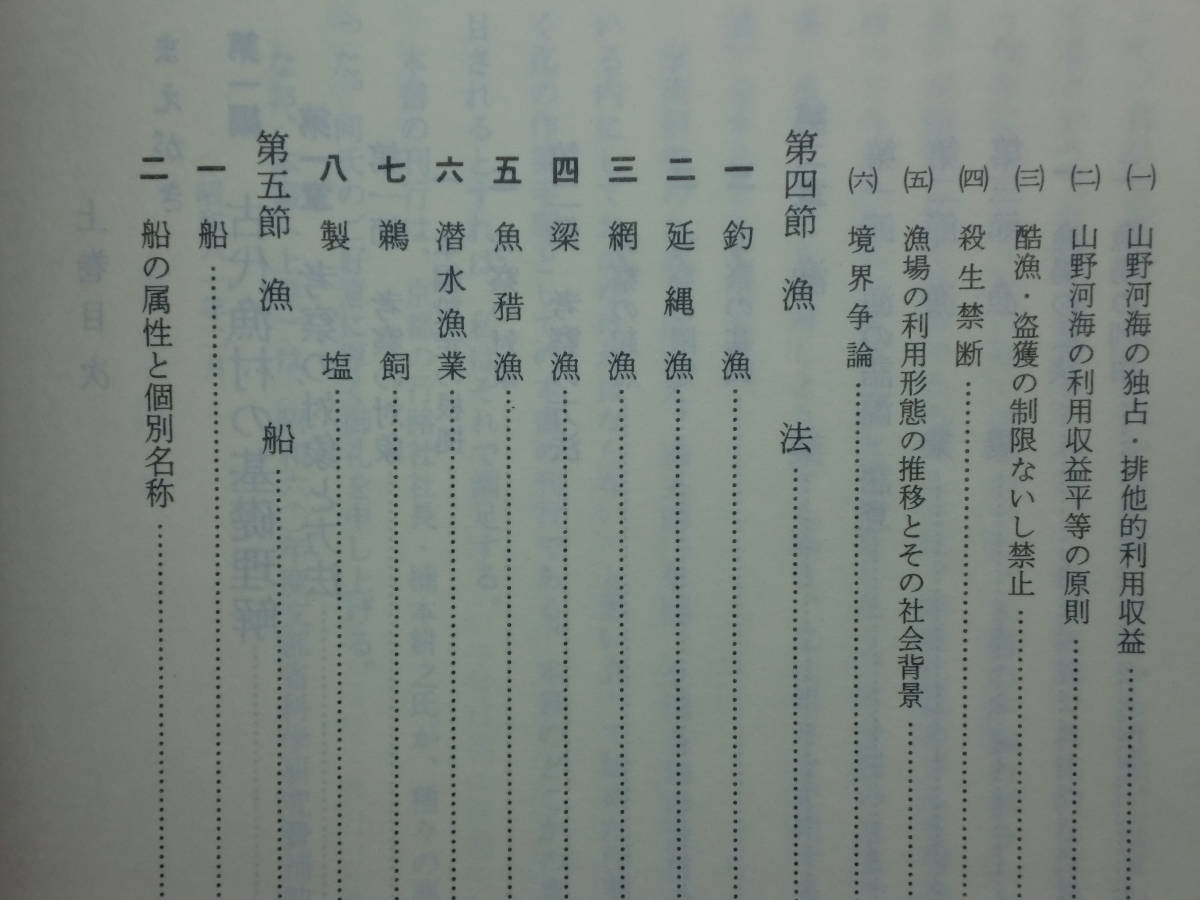 ㈠ 山野河海の独占・排他的利用収益
㈡ 山野河海の利用収益平等の原則
㈢ 酷漁・盗獲の制限ないし禁止
㈣ 殺生禁断
㈤ 漁場の利用形態の推移とその社会背景
㈥ 境界争論
第四節 漁法
一 釣漁
二 延縄漁
三 網漁
四 梁漁
五 魚䇎漁
六 潜水漁業
七 鵜飼
八 製塩
第五節 漁船
一 船
二 船の属性と個別名称